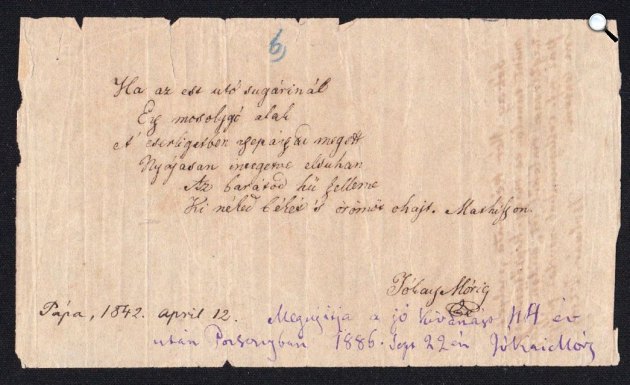 6)
Ha az est utó sugárinál
Egy mosolygó alak
A' cserligetben megett
Nyájasan integetve elsuhan
Az barátod hű szelleme
Ki néked békét 's örömöt ohajt. Mathisson.
Jókay Móricz
Pápa, 1842. april 12.
Megujitja a jó kivánást 44 év
után Pozsonyban 1886. Sept 22én Jókai Mór